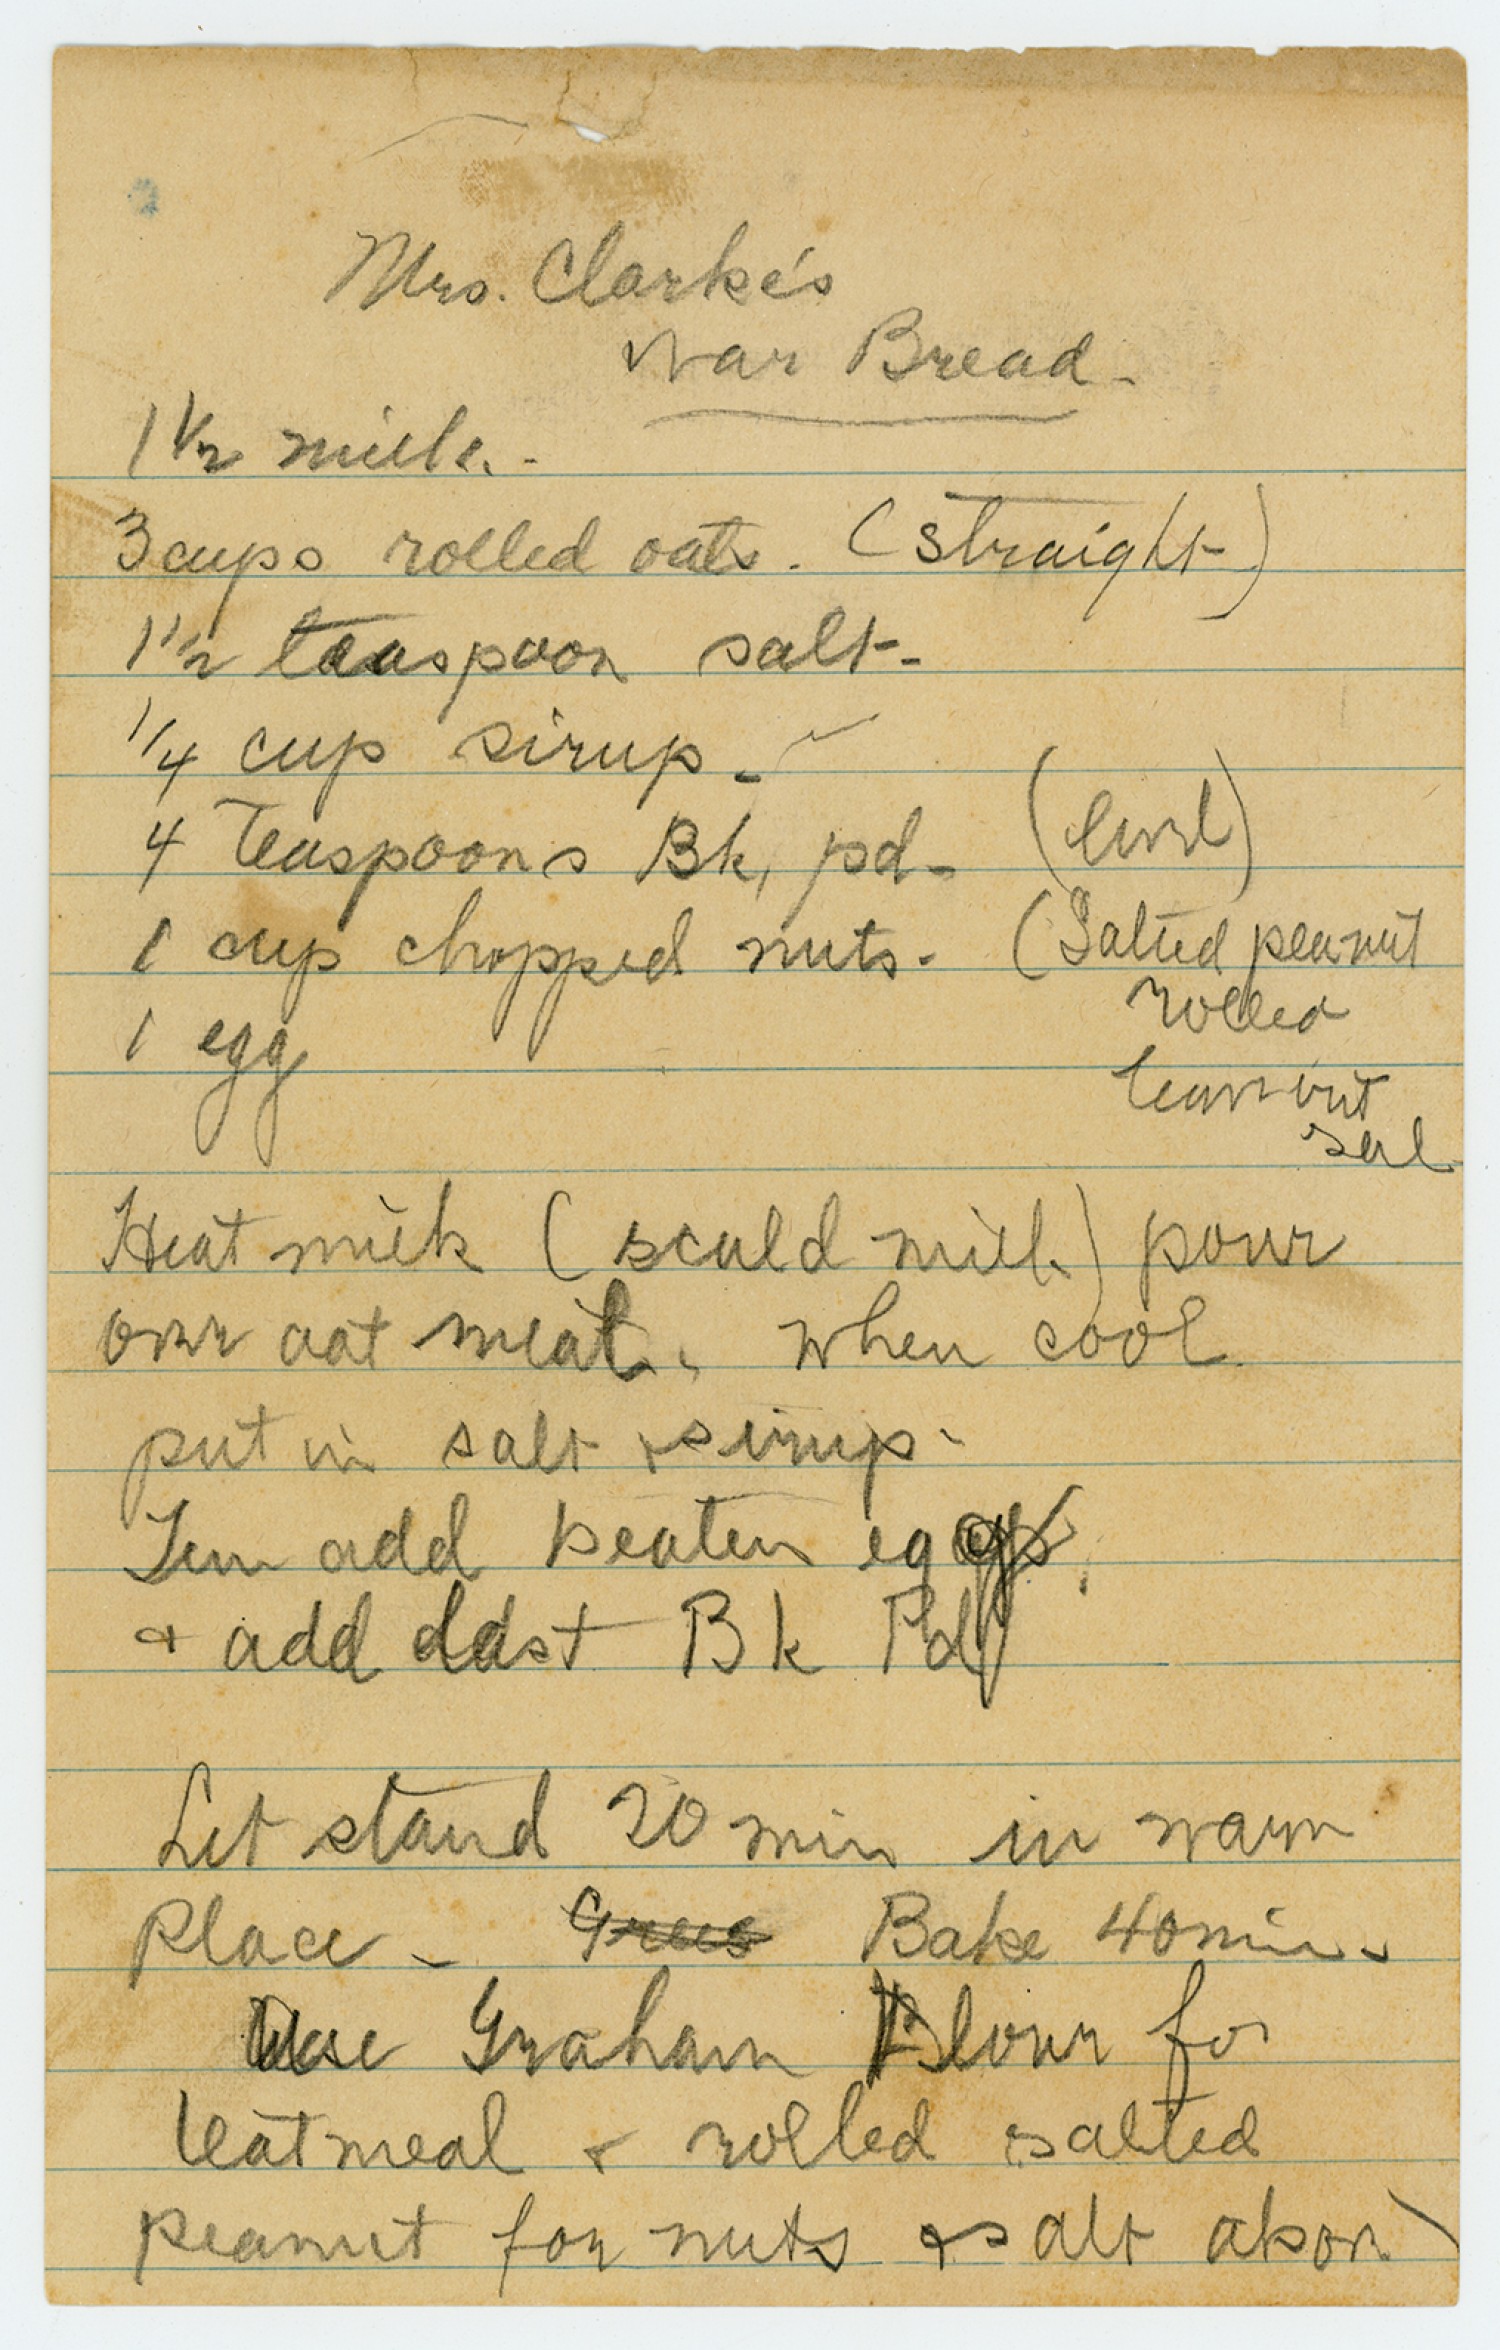 Mrs. Clarke's
War Bread -
1 1/2 milk. -
3 cups rolled oats. (straight)
1 1/2 teaspoon salt -
1/4 cup sirup -
4 Teaspoons Bk, pd - (level)
1 cup chopped nuts - (Salted peanut
rolled
1 egg
leave out
sal
Heat milk (scald milk) pour
over oat meal. when cool
put in salt & sirup -
add beaten egg
& add last Bk Pd
Let stand 20 min in warm
Place - Bake 40 min -
Use Graham Flour for
oatmeal & rolled salted
peanut for nuts & salt abov